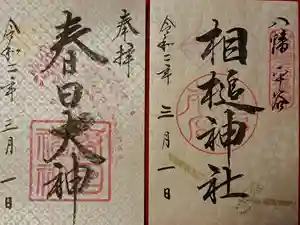 奉拝
春日大神
令和二年 三月 一日
八幡 平谷
相槌神社
令和二年 三月 一日